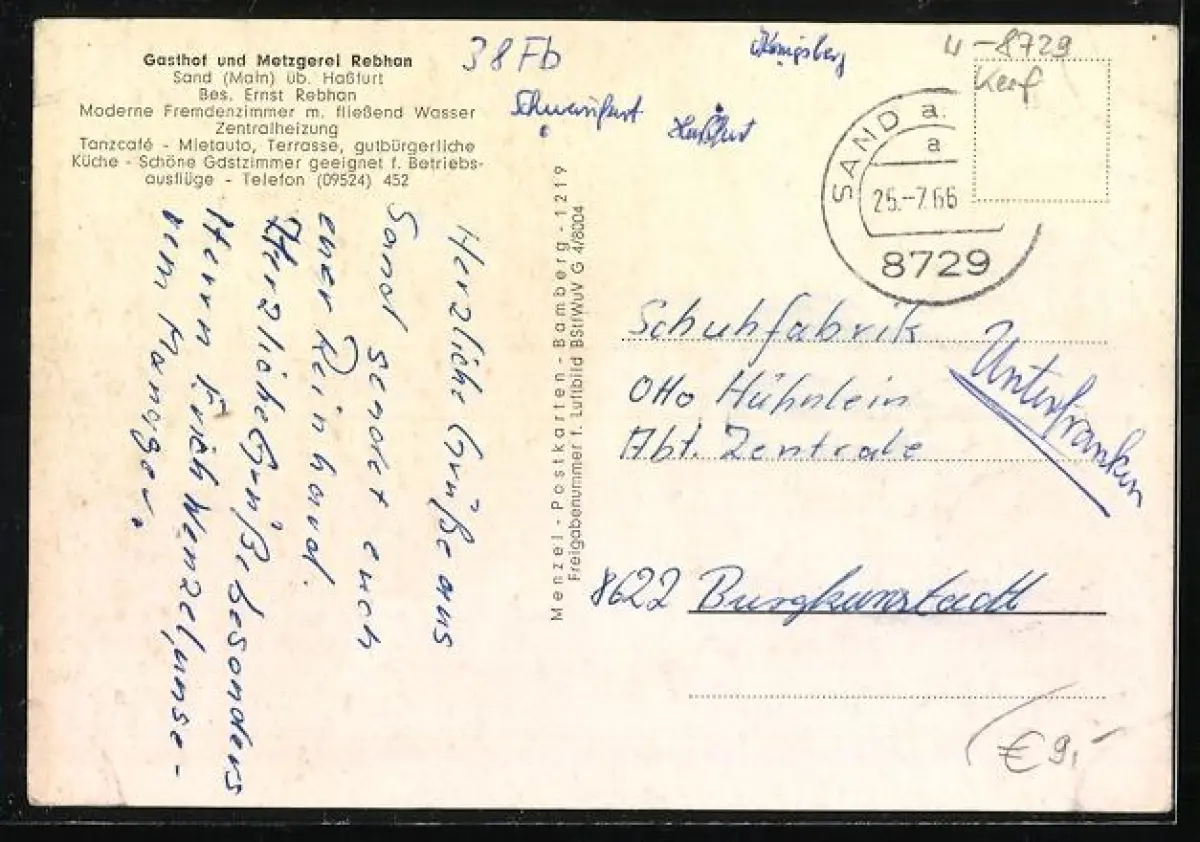 Gasthof und Metzgerei Rebhan
Sand (Main) üb. Haßfurt
Bes. Ernst Rebhan
Moderne Fremdenzimmer m. fließend Wasser
Zentralheizung
Tanzcafé - Mietauto, Terrasse, gutbürgerliche
Küche - Schöne Gastzimmer geeignet f. Betriebs-
ausflüge - Telefon (09524) 452
38 Fb
Königsberg
Schweinfurt
Haßfurt
4-8729
SAND a.
a
25.-7.66
8729
Herzliche Grüße aus
Sand sendet euch
euer Reinhard.
Herzliche Grüße besonders
Herrn Erich Wenzel, unse-
rem Manager.
Menzel-Postkarten-Bamberg-1219
Freigabenummer f. Luftbild BStfWuV G 4/8004
Schuhfabrik
Otto Hühnlein
Abt. Zentrale
Unterfranken
8622 Burgkunstadt
€ 9,-